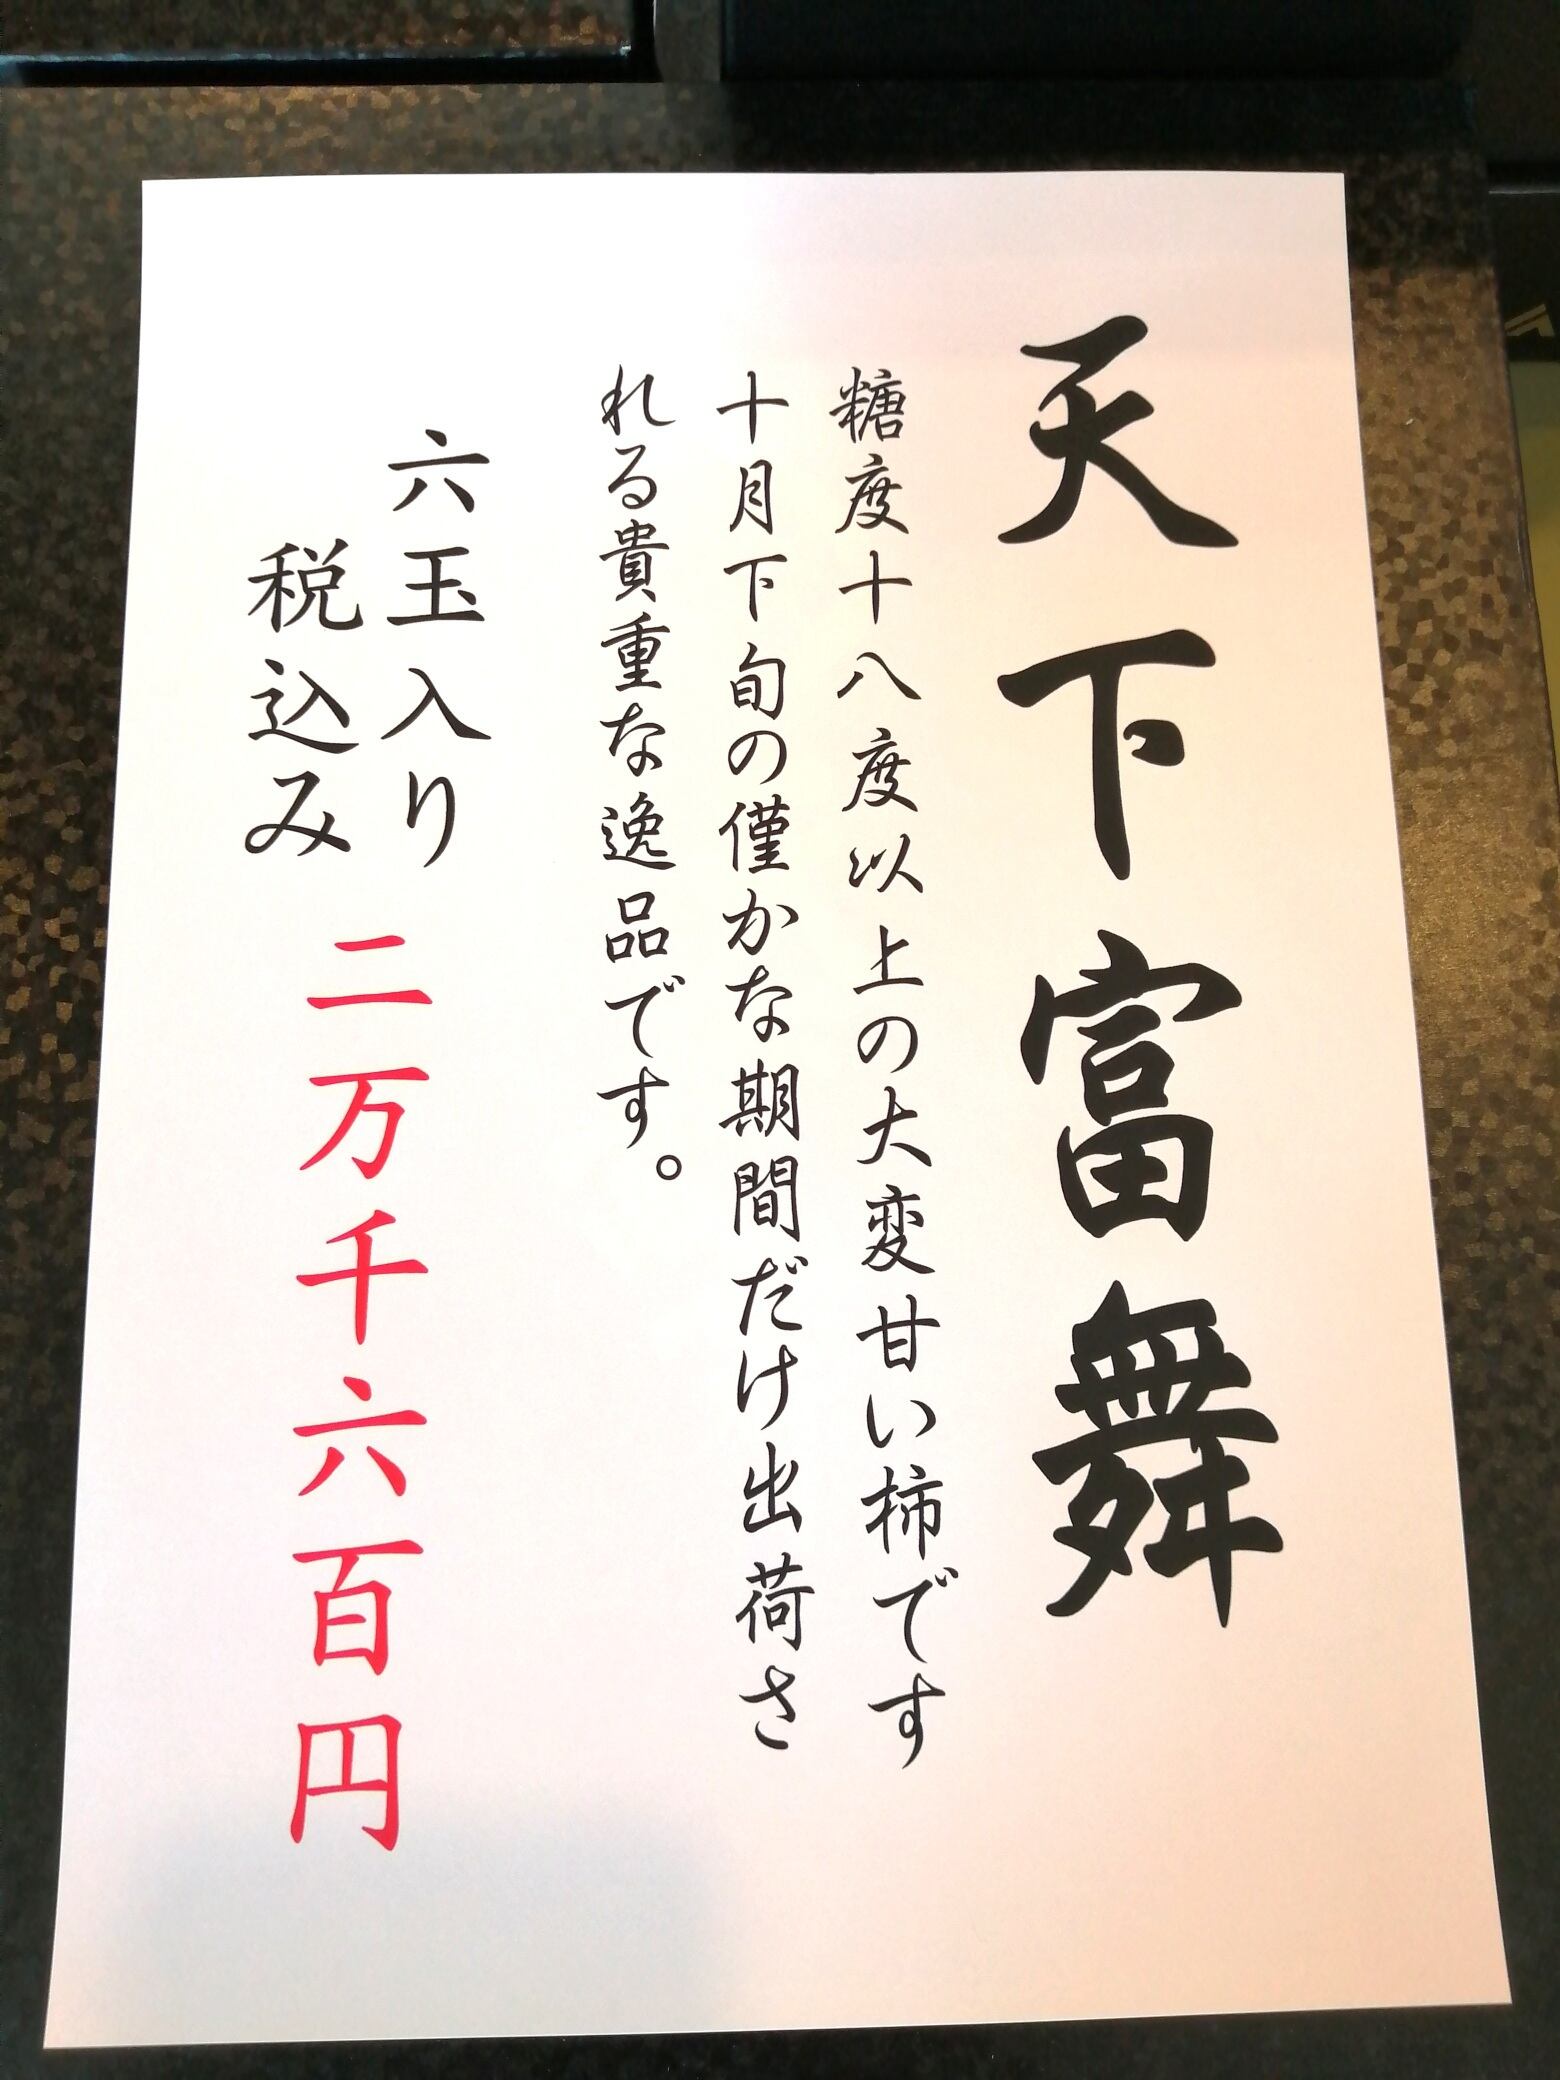 天下富舞
糖度十八度以上の大変甘い柿です
十月下旬の僅かな期間だけ出荷さ
れる貴重な逸品です。
六玉入り
税込み
二万千六百円